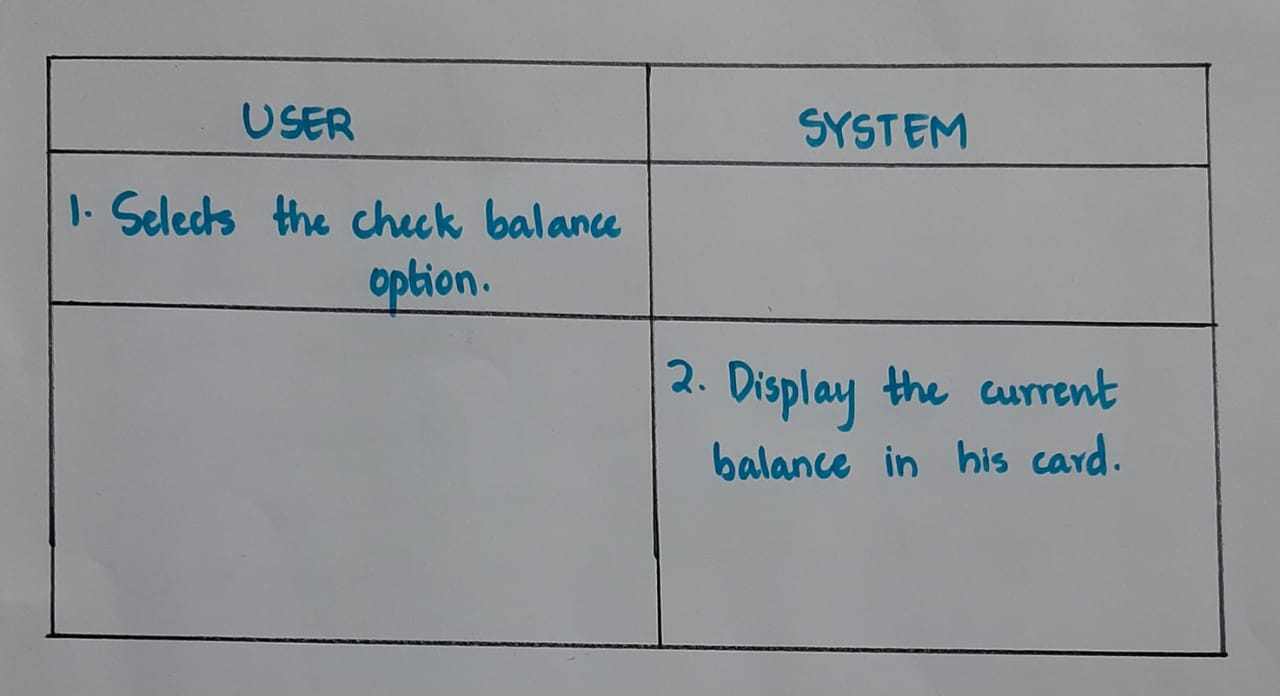 USER
SYSTEM
1. Selects the check balance
option.
2. Display the current
balance in his card.